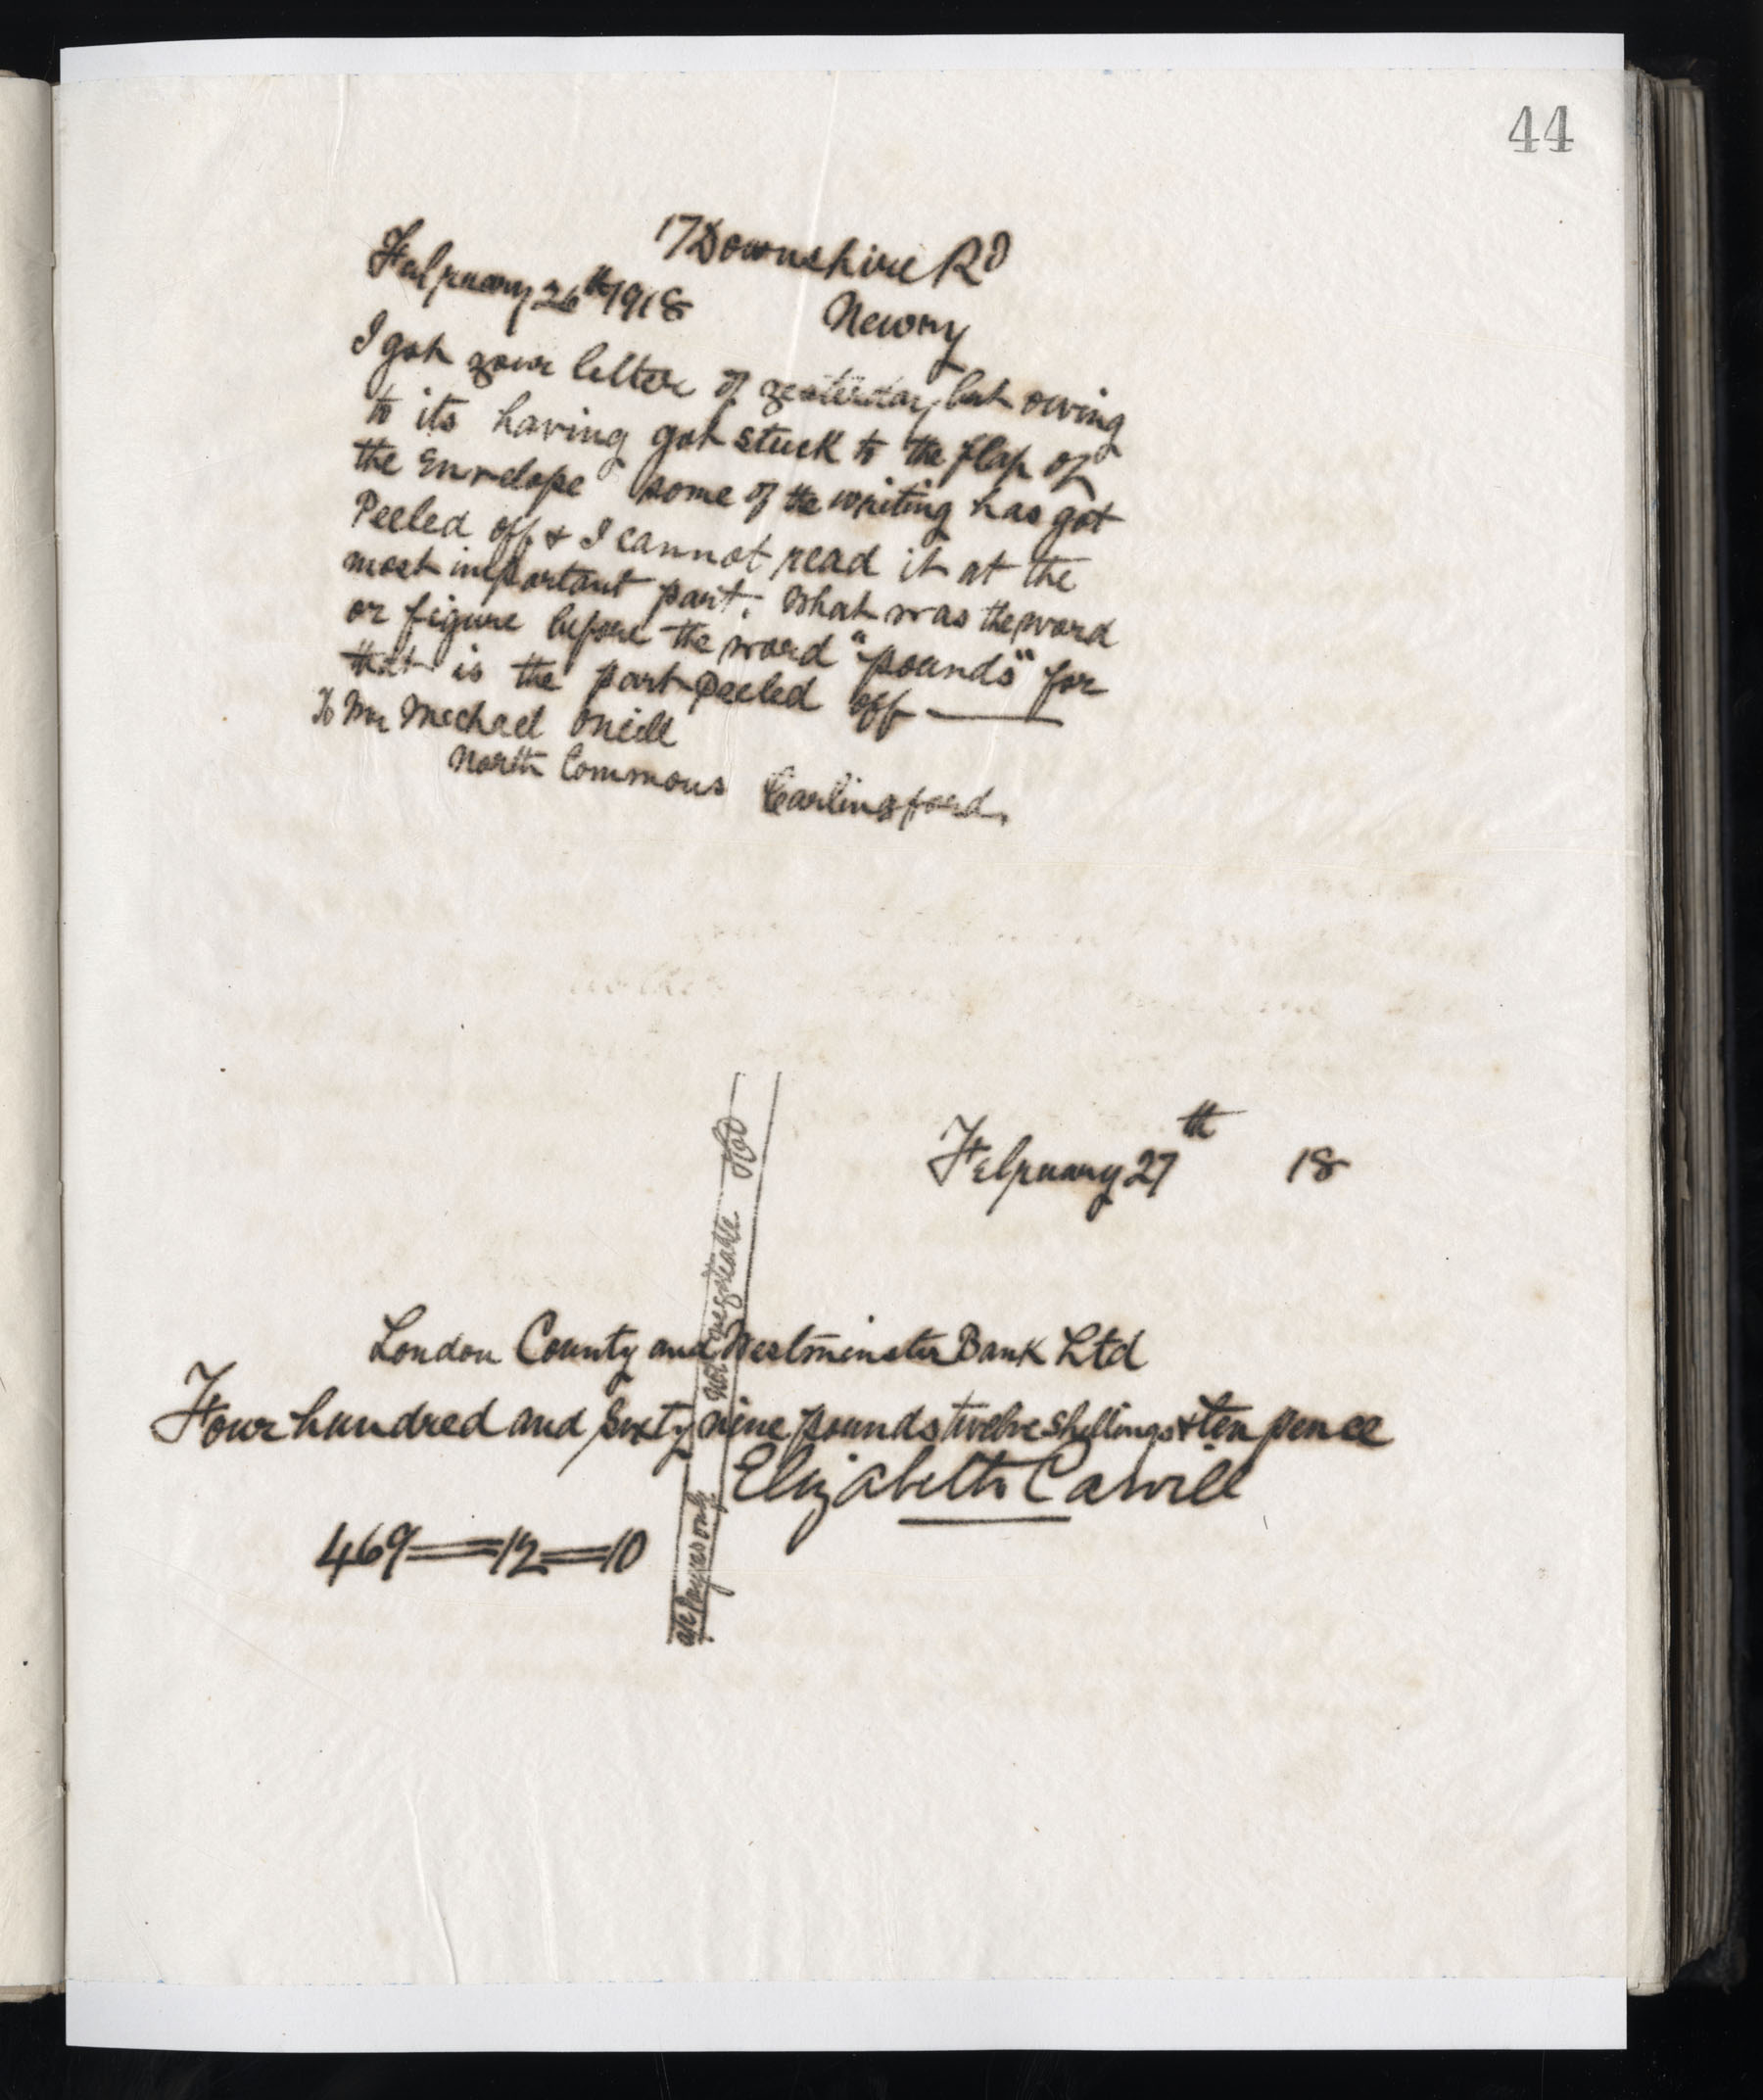 44
17 Downshire Rd
February 26th 1918
Newry
I got your letter of yesterday, but owing
to its having got stuck to the flap of
the Envelope some of the writing has got
Peeled off & I cannot read it at the
most important part. What was the word
or figure before the word "pounds" for
that is the part Peeled off
To Mr Michael Oneill
North Commons Carlingford.
February 27th 18
London County and Westminster Bank Ltd
Four hundred and sixty nine pounds twelve shillings & ten pence
Elizabeth Carvill
469=12=10
a/c Payees only not negotiable